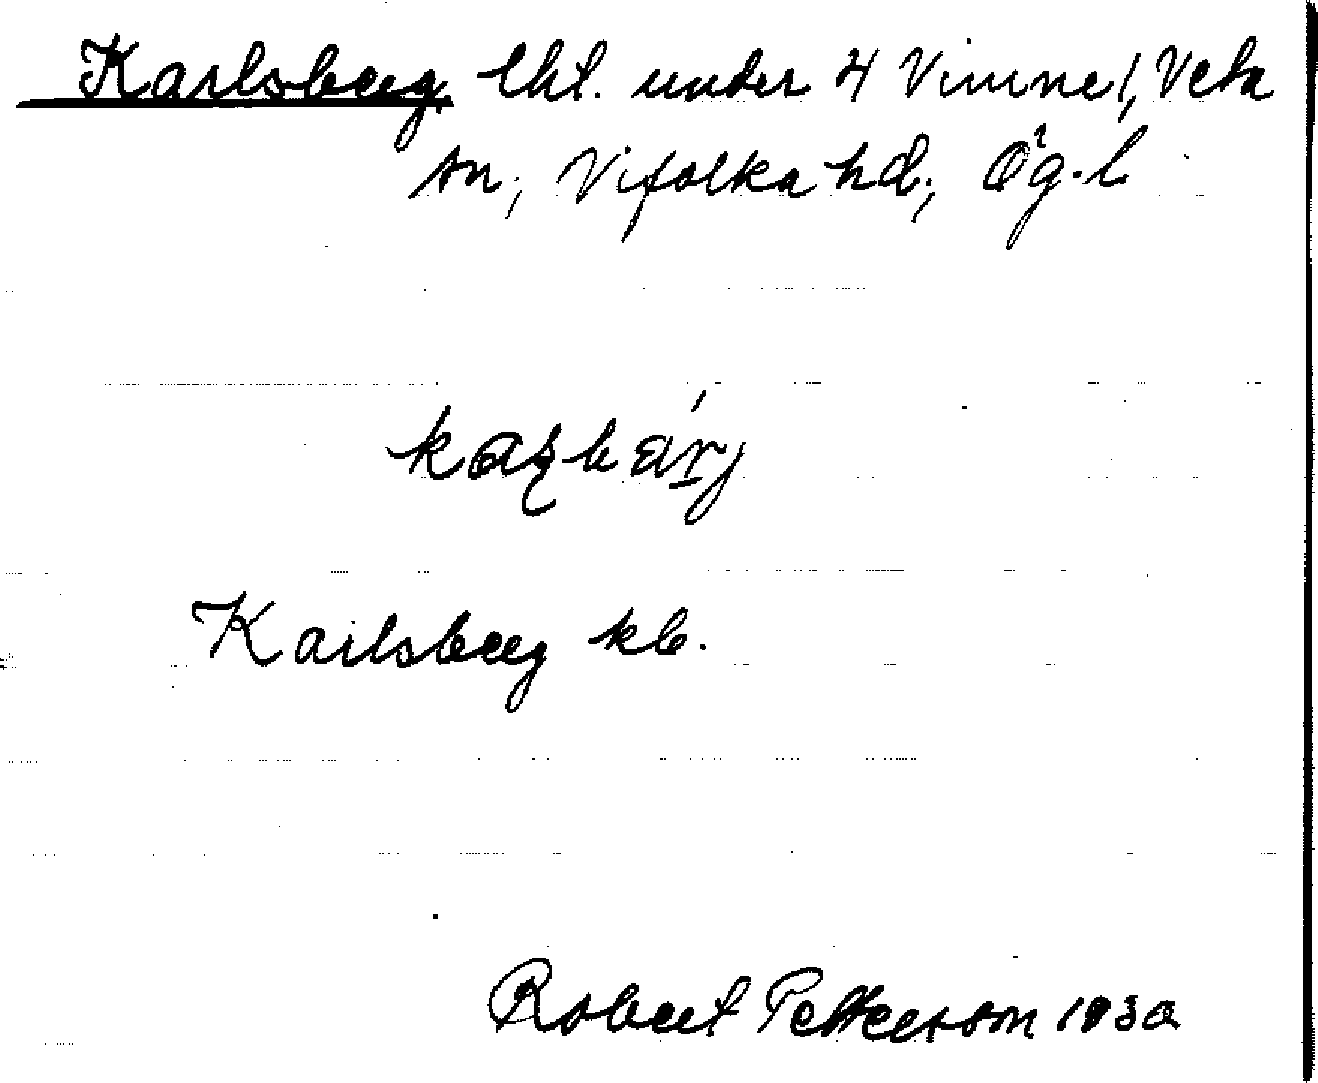 Karlsberg, lht. under 4 Vimne!, Veta
sn; Vifolka hd; Ög. l
Karlsberg kb.
Robert Petterson 1930